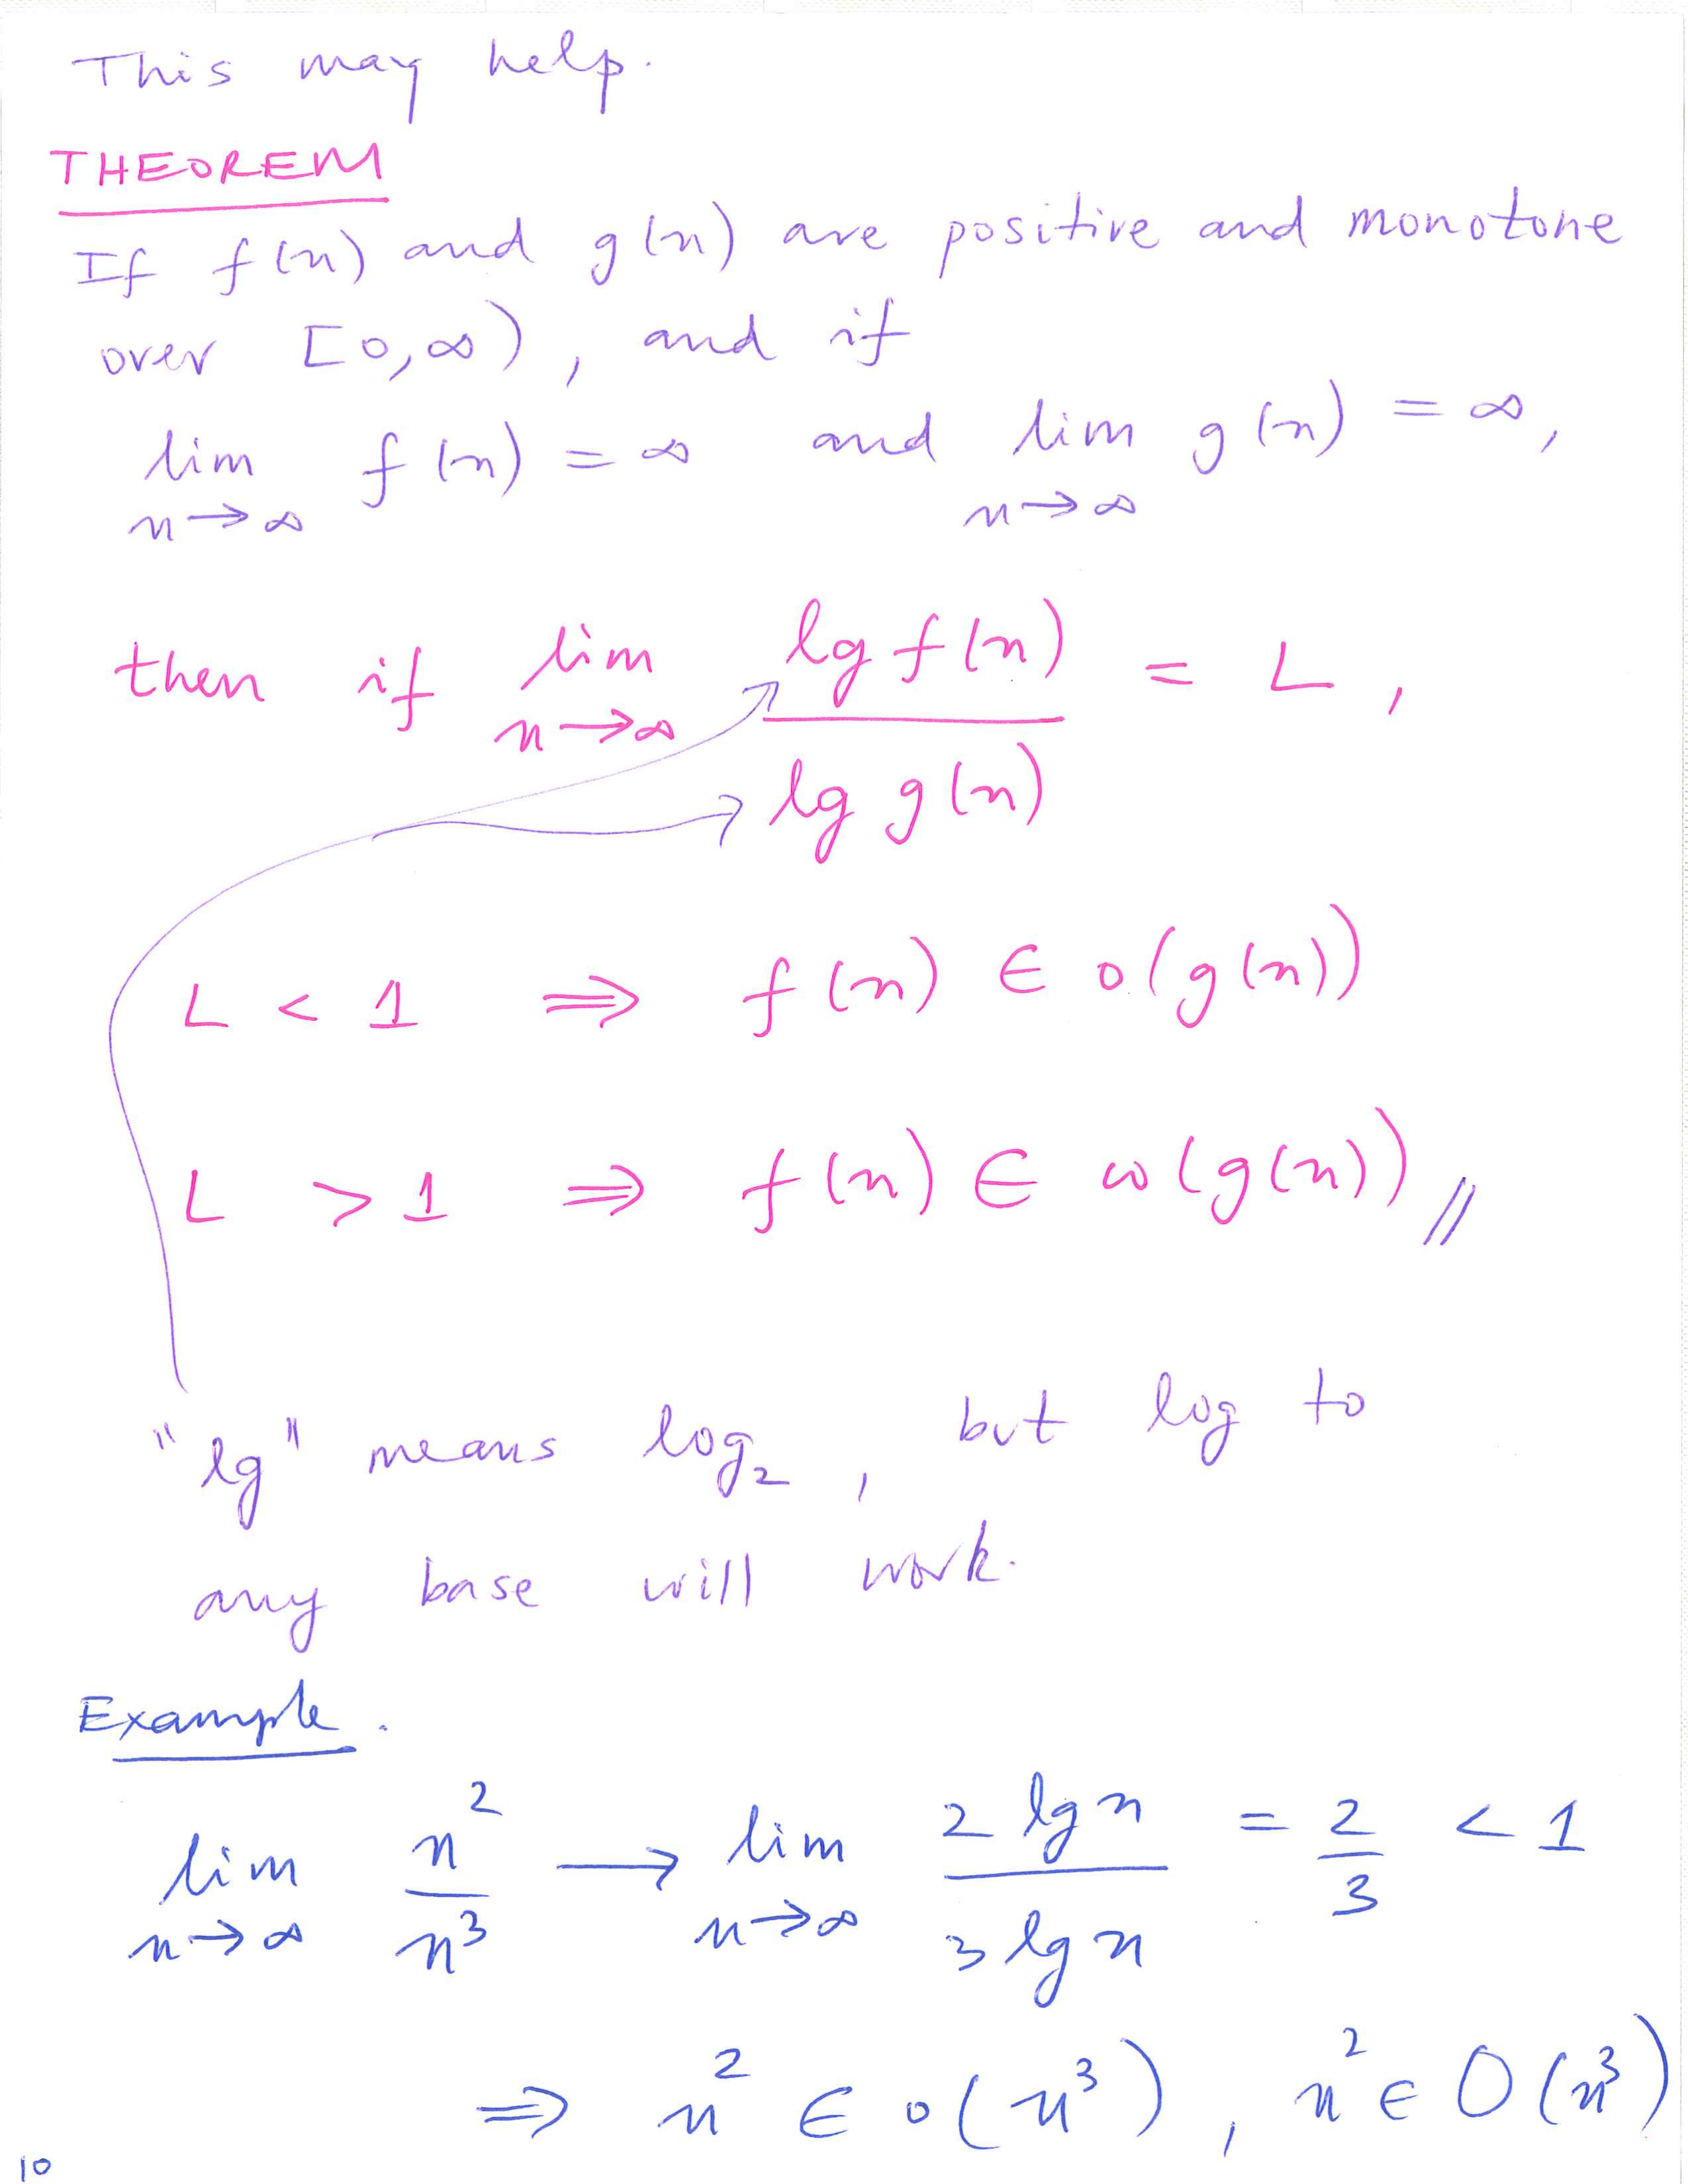 This may help.
THEOREM
If f(n) and g(n) are positive and monotone
over [0,∞), and if
lim f(n) = ∞ and lim g(n) = ∞,
n→∞ n→∞
then if lim lg f(n) = L,
n→∞ lg g(n)
L < 1 ⇒ f(n) ∈ o(g(n))
L > 1 ⇒ f(n) ∈ ω(g(n)) //
"lg" means log₂, but log to
any base will work.
Example.
lim n² → lim 2 lg n = 2 < 1
n→∞ n³ n→∞ 3 lg n 3
⇒ n² ∈ o(n³), n² ∈ O(n³)
10